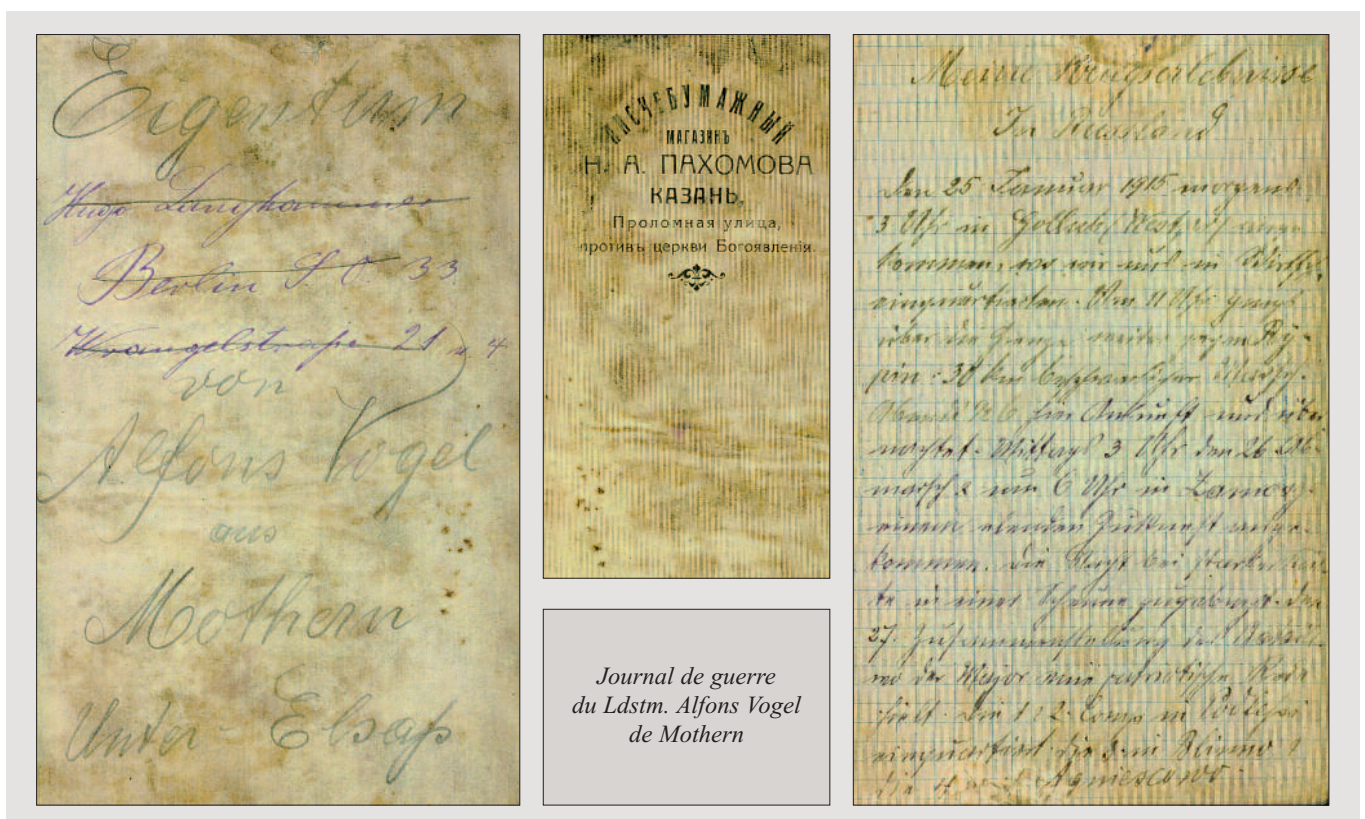 Eigentum
Hugo Langhammer
Berlin S. O. 33
Wrangelstraße 21 4
von
Alfons Vogel
aus
Mothern
Unter-Elsaß
ПИСЧЕБУМАЖНЫЙ
МАГАЗИНЪ
Н. А. ПАХОМОВА
КАЗАНЬ,
Проломная улица,
противъ церкви Богоявленія.
Journal de guerre
du Ldstm. Alfons Vogel
de Mothern
Meine Kriegserlebnisse
In Russland
Den 25 Januar 1915 morgens
3 Uhr in Gollub, Westpr. ange
kommen, wo wir uns in
einquartierten. Um 11 Uhr gings
über die Grenze weiter gegen Ry-
pin. 30 km beschwerlicher Marsch.
Abends 1/2 6 Uhr Ankunft und über
nachtet. Mittags 3 Uhr den 26. Ab-
marsch & um 6 Uhr in
einem elenden ange-
kommen. Die Nacht bei starker Käl-
te in einer Scheune zugebracht. Den
27. Zusammenstellung des
wo der Major eine patriotische Rede
hielt. Die 1 & 2. Comp in
einquartiert die 3. in Blinno &
die 4. Agniescowo.